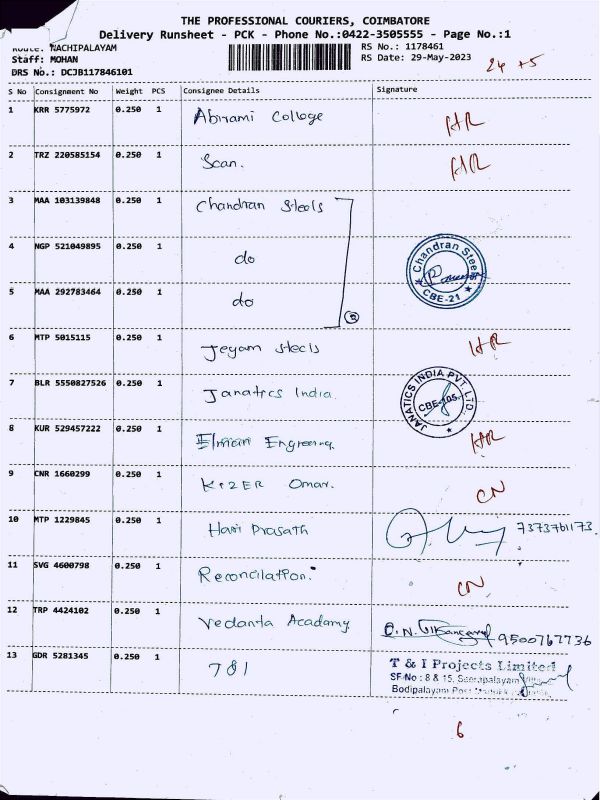 THE PROFESSIONAL COURIERS, COIMBATORE
Delivery Runsheet - PCK - Phone No.:0422-3505555 - Page No.:1
Route: NACHIPALAYAM RS No.: 1178461
Staff: MOHAN RS Date: 29-May-2023 24 +5
DRS No.: DCJB117846101
S No Consignment No Weight PCS Consignee Details Signature
1 KRR 5775972 0.250 1 Abirami College HR
2 TRZ 220585154 0.250 1 Scan. HR
3 MAA 103139848 0.250 1 Chandran Steels
4 NGP 521049895 0.250 1 do Chandran Steels CBE-21
5 MAA 292783464 0.250 1 do
6 MTP 5015115 0.250 1 Jeyam Steels HR
7 BLR 5550827526 0.250 1 Janatics India. JANATICS INDIA PVT. LTD. CBE-105.
8 KUR 529457222 0.250 1 HR
9 CNR 1660299 0.250 1 Omar. CN
10 MTP 1229845 0.250 1 Hari Prasath 7373761173.
11 SVG 4600798 0.250 1 Reconcilation. CN
12 TRP 4424102 0.250 1 Vedanta Acadamy 9500767736
13 GDR 5281345 0.250 1 781 T & I Projects Limited
SF No : 8 & 15, Seerapalayam
Bodipalayam Post
6